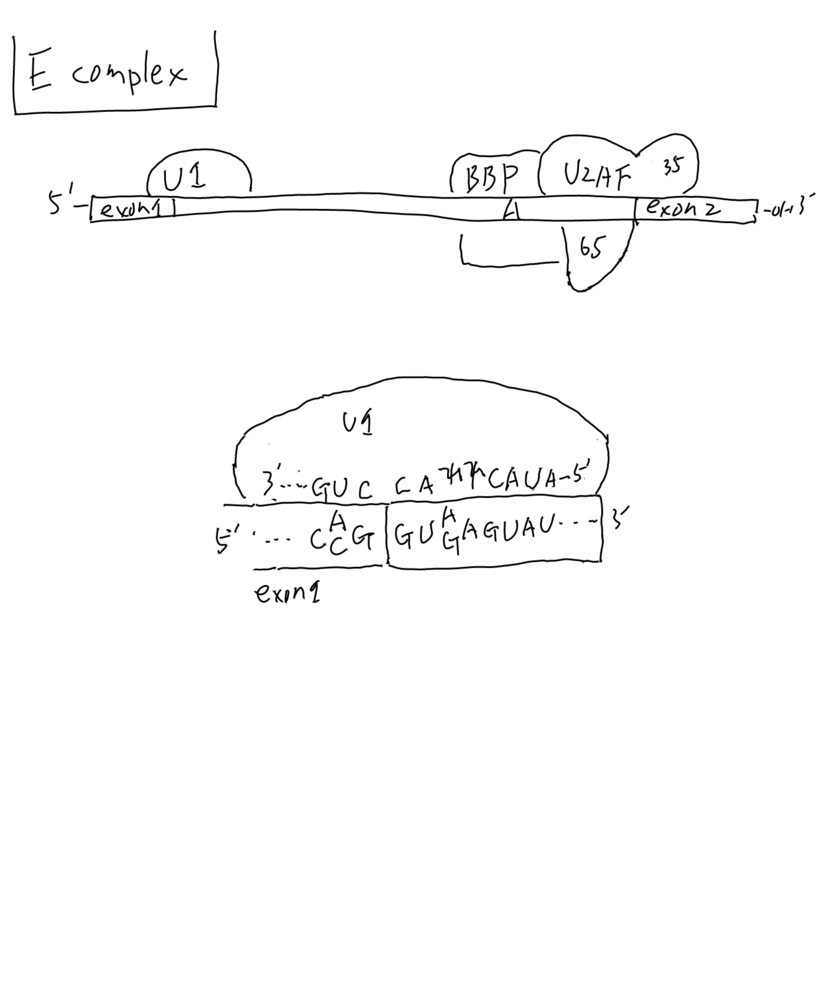 E complex
U1 BBP U2AF 35
5'- exon1 A exon2 -OH 3'
65
U1
3'....GUC CAψψCAUA-5'
5'.... C A/C G GU A/G AGUAU...-3'
exon1